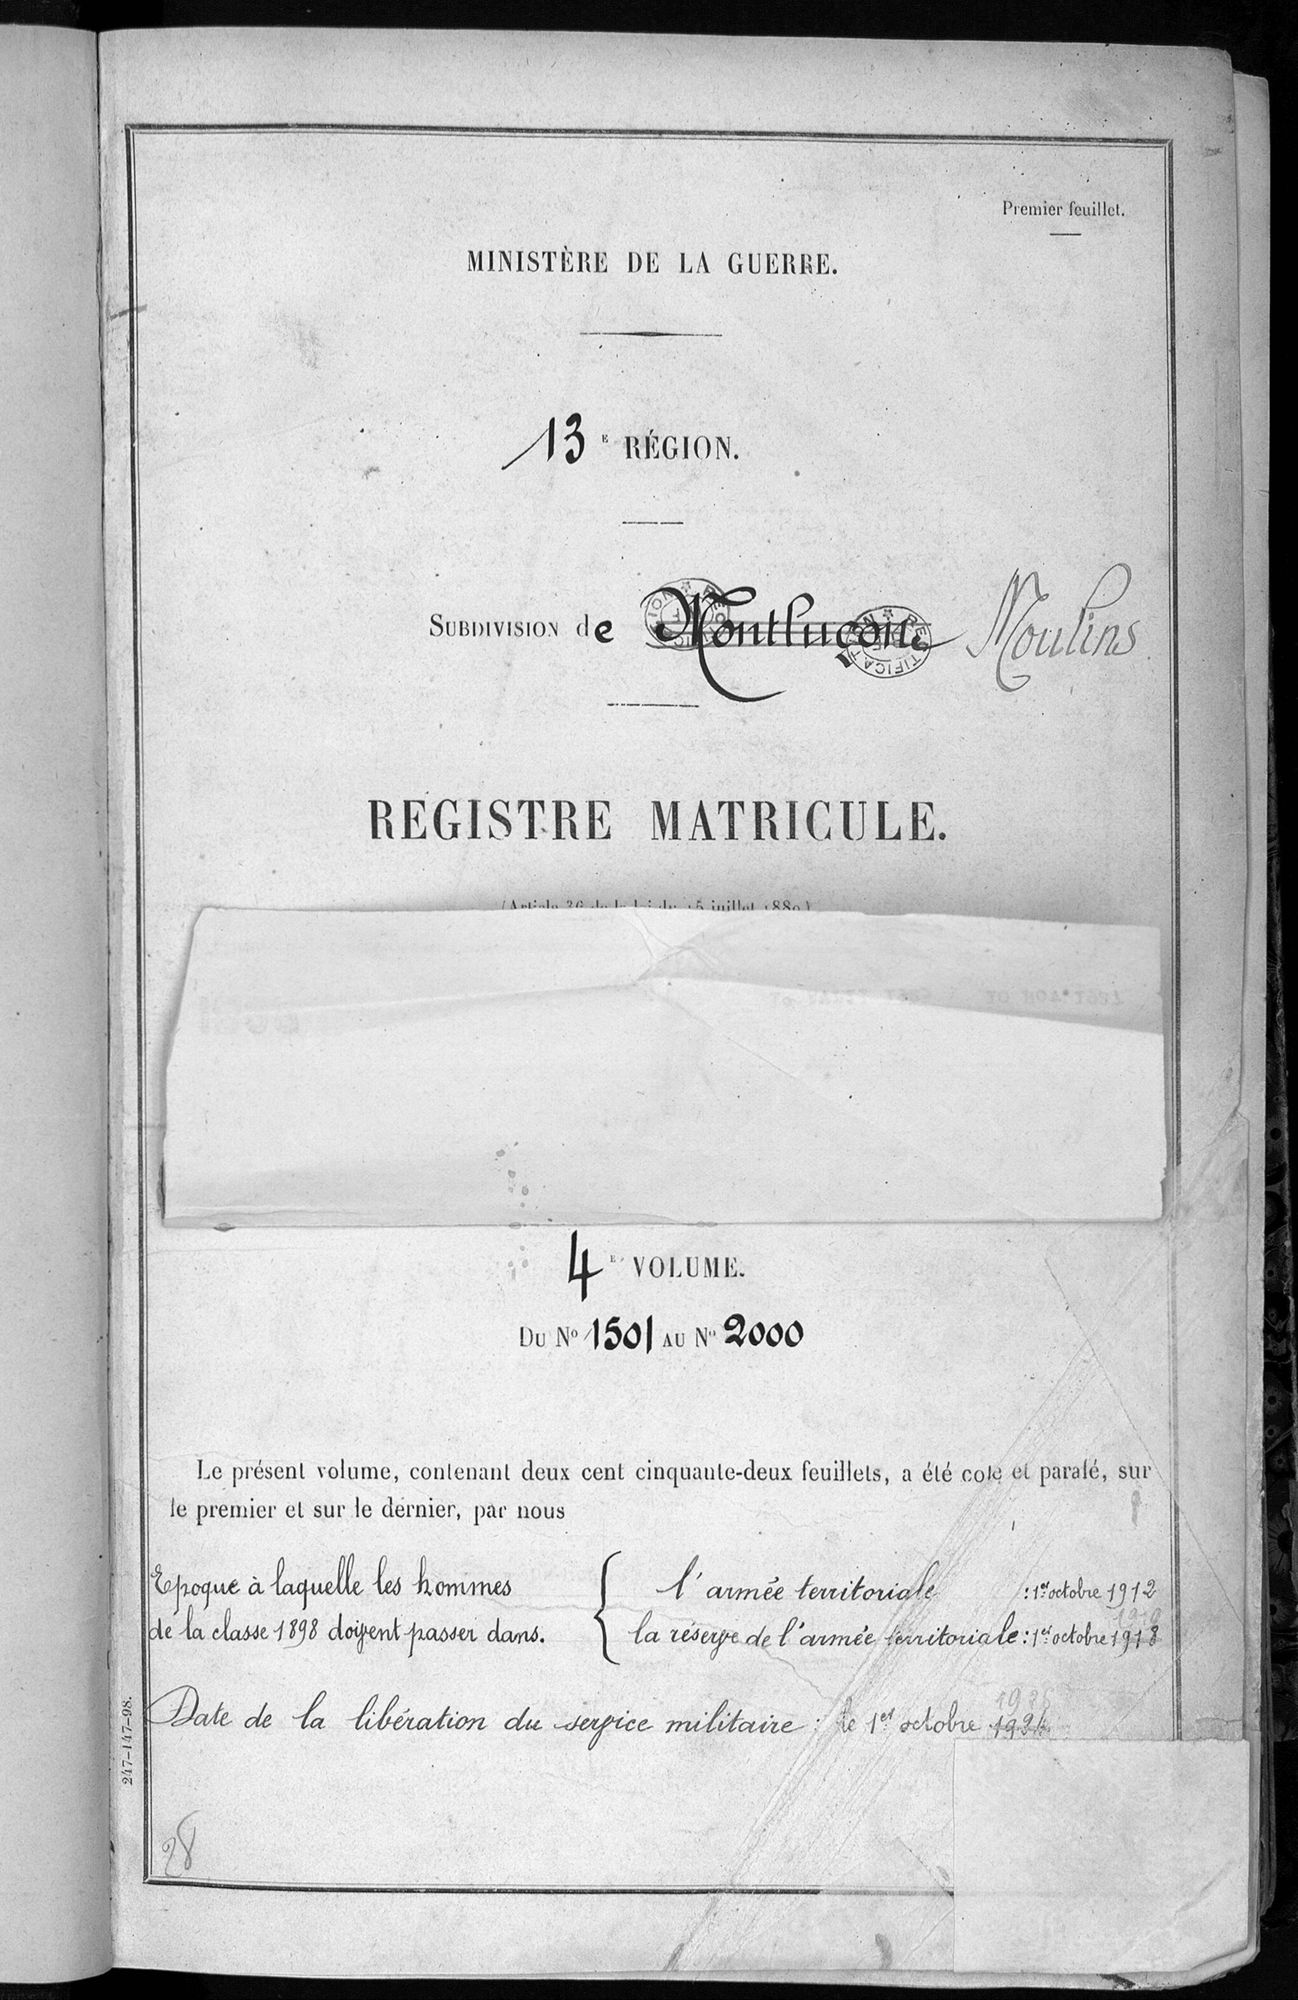 Premier feuillet.
MINISTÈRE DE LA GUERRE.
13E RÉGION.
SUBDIVISION de Montluçon Moulins
RECTIFICATION
RECTIFICATION
REGISTRE MATRICULE.
(Article 36 de la loi du 15 juillet 1889)
4E VOLUME.
DU No 1501 AU No 2000
Le présent volume, contenant deux cent cinquante-deux feuillets, a été coté et parafé, sur
le premier et sur le dernier, par nous
Epoque à laquelle les hommes
de la classe 1898 doivent passer dans.
l'armée territoriale : 1er octobre 1912
1919
la réserve de l'armée territoriale : 1er octobre 1918
1926
Date de la libération du service militaire : le 1er octobre 1924
247-147-98.
28